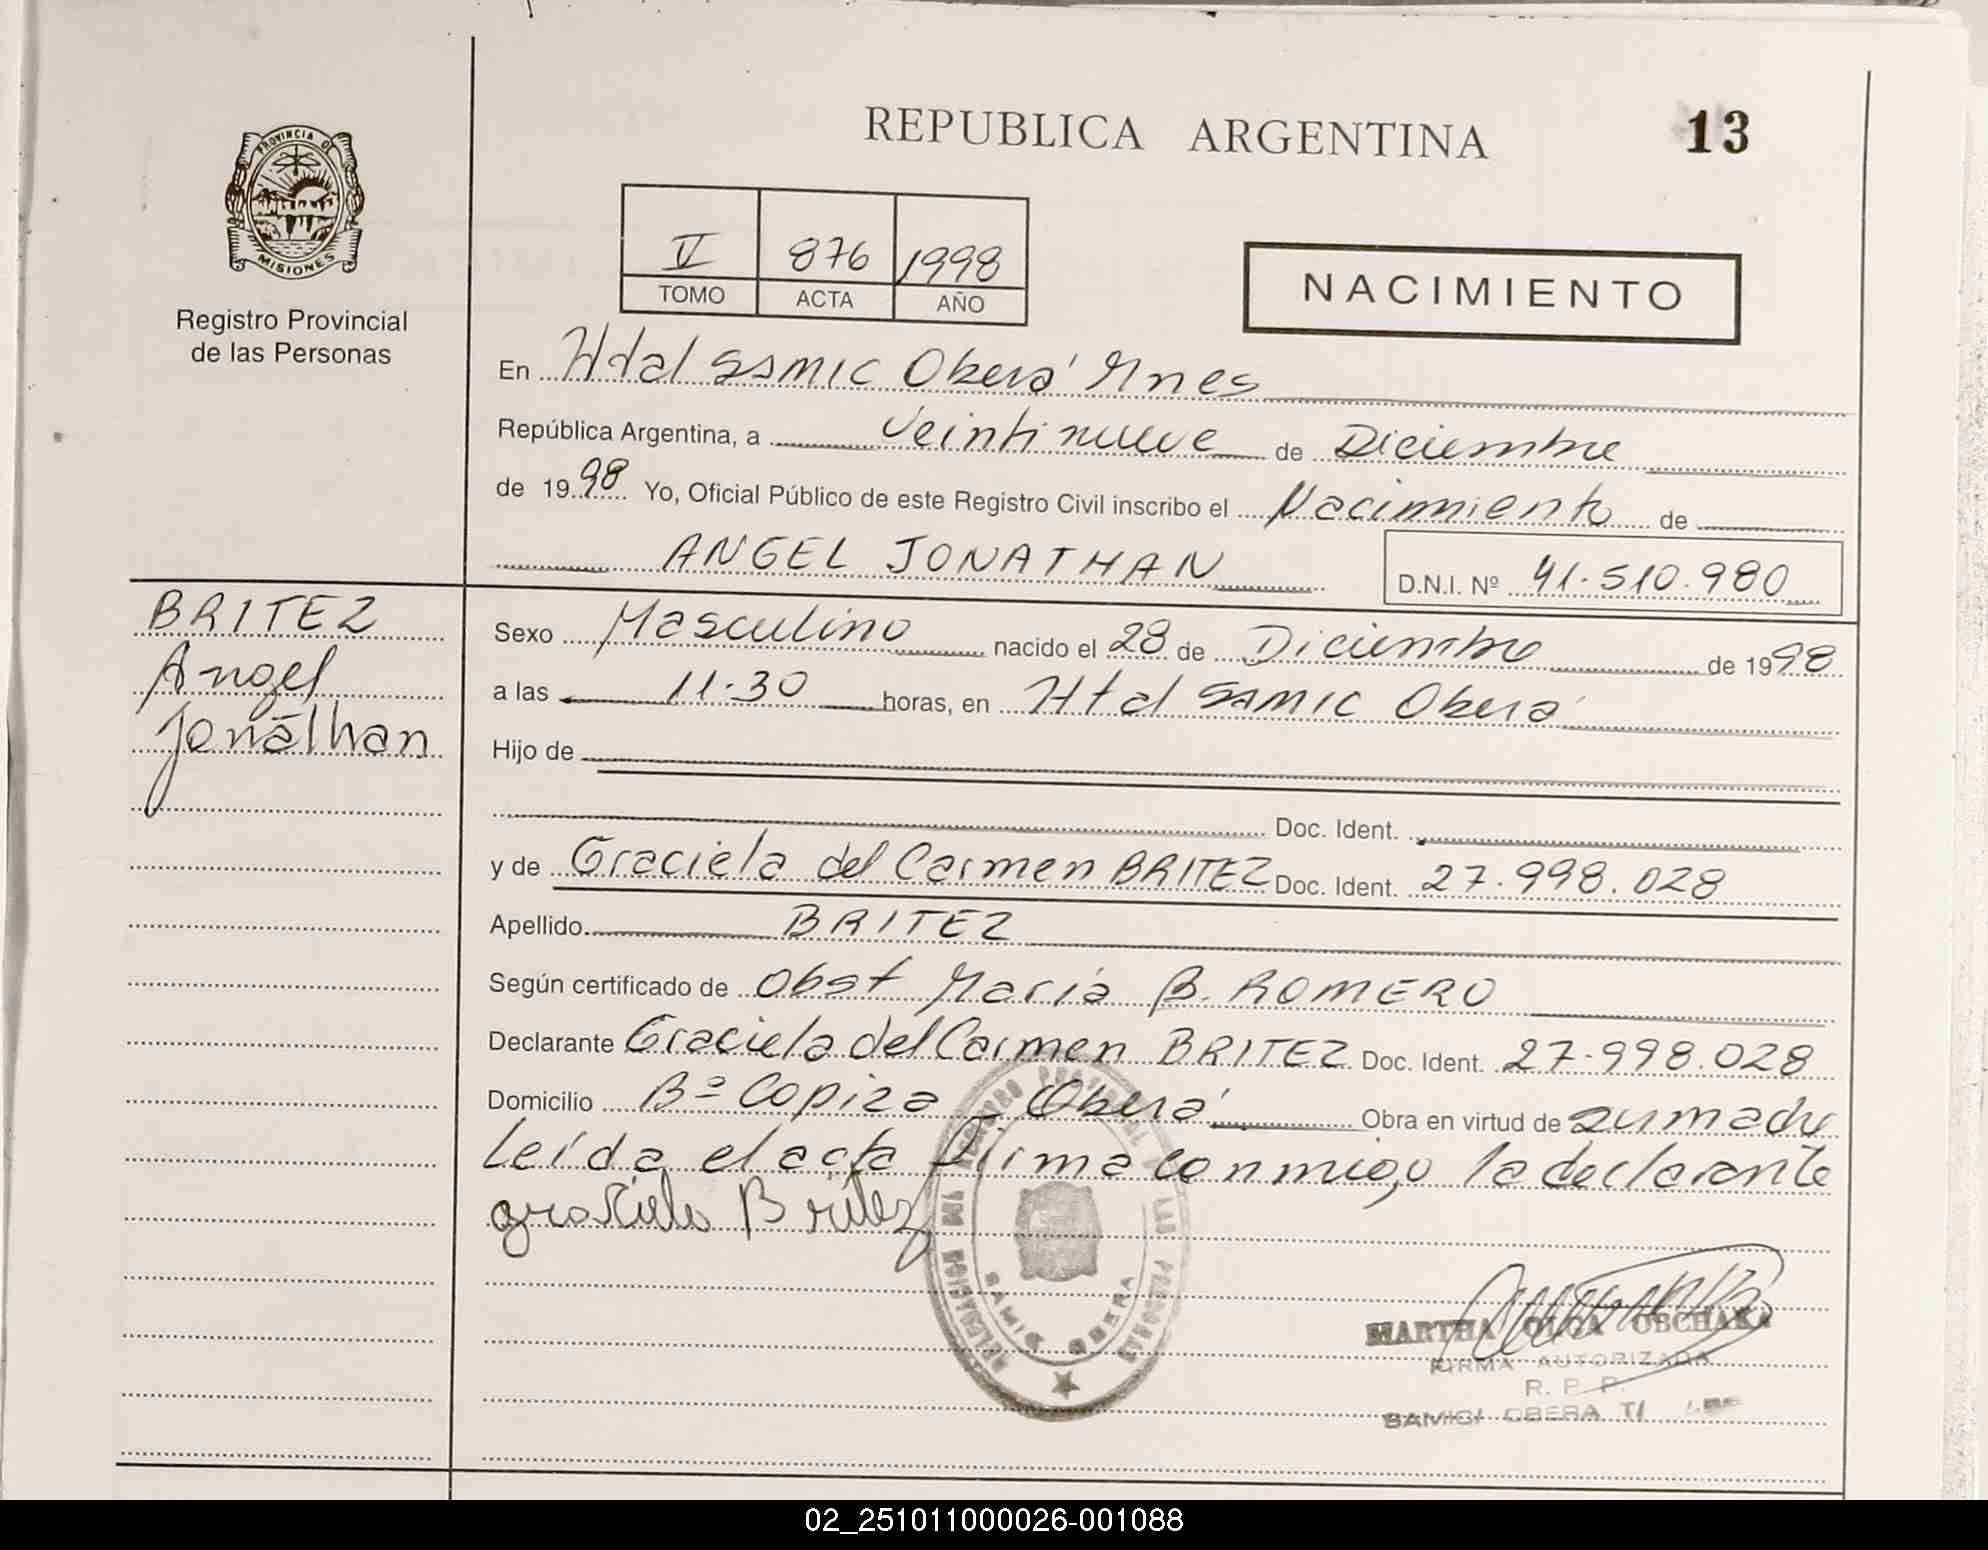 REPUBLICA ARGENTINA
13
PROVINCIA DE
MISIONES
Registro Provincial
de las Personas
V 876 1998
TOMO ACTA AÑO
NACIMIENTO
En Htal SAMIC Oberá Mnes
República Argentina, a veintinueve de Diciembre
de 1998 Yo, Oficial Público de este Registro Civil inscribo el Nacimiento de
ANGEL JONATHAN D.N.I. Nº 41.510.980
BRITEZ
Angel
Jonathan
Sexo Masculino nacido el 28 de Diciembre de 1998
a las 11.30 horas, en Htal SAMIC Oberá
Hijo de
Doc. Ident.
y de Graciela del Carmen BRITEZ Doc. Ident. 27.998.028
Apellido BRITEZ
Según certificado de Obst María B. ROMERO
Declarante Graciela del Carmen BRITEZ Doc. Ident. 27.998.028
Domicilio Bº Copiza - Oberá Obra en virtud de su madre
Leída el acta firma conmigo la declarante
graciela Britez
SAMIC OBERA
MARTHA OLGA OBCHAKA
FIRMA AUTORIZADA
R. P. P.
SAMIC/ OBERA
02_251011000026-001088